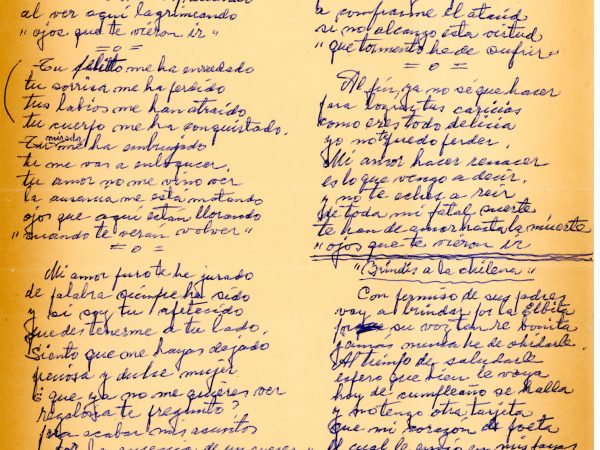 al ver aquí lagrimeando
" ojos que te vieron ir "
= o =
Tu pelito me ha enredado
tu sonrisa me ha perdido
tus labios me han atraído
tu cuerpo me ha conquistado.
Tu mirada me ha embrujado
tu me vas a enloquecer,
tu amor no me vino ver
la ausencia me esta matando
ojos que aquí estan llorando
" cuando te verán volver "
= o =
Mi amor puro te he jurado
de palabra siempre ha sido
y si soy tu afelecido
puedes tenerme a tu lado.
Siento que me hayas dejado
preciosa y dulce mujer
O que ya no me quieres ver
regalosa te pregunto?
para acabar mis asuntos
por la ausencia de un querer
a comprarme el ataúd
si no alcanzo esta virtud
" que tormento he de sufrir "
= o =
Al fin, ya no sé que hacer
para lograr tus caricias
como eres todo delicia
yo no te puedo perder.
Mi amor hacer renacer
es lo que vengo a decir,
y no te eches a reir
de toda mi fatal suerte
te han de amar hasta la muerte
" ojos que te vieron ir
" Brindis a la chilena "
Con permiso de sus padres
voy a brindar por la Elbita
su voz tan re bonita
jamás nunca he de olvidarle.
Al tiempo de saludarle
espero que bien le vaya
hoy de cumpleaño se halla
y no tengo otra tarjeta
que mi corazón de poeta
el cual le envío en mis payas